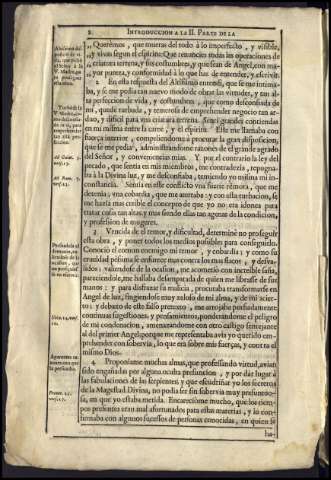 2 INTRODUCCION A LA II. PARTE DE LA
Querèmos, que mueras del todo à lo imperfecto, y visible,
y vivas segun el espiritu: Que renuncies todas las operaciones de
criatura terrena, y sus costumbres, y que sean de Angel, con ma-
yor pureza, y conformidad à lo que has de entender, y escrivir.
2 En esta respuesta del Altissimo entendi, que se me intima-
ba, y se me pedia tan nuevo modo de obrar las virtudes, y tan al-
ta perfeccion de vida, y costumbres, que como desconfiada de
mi, quedè turbada, y temerosa de emprender negocio tan ar-
duo, y dificil para una criatura terrena. Senti grandes contiendas
en mi misma entre la carne, y el espiritu. Este me llamaba con
fuerça interior, compeliendome à procurar la gran disposicion,
que se me pedia, administrandome razones de el grande agrado
del Señor, y conveniencias mias. Y por el contrario la ley del
pecado, que sentia en mis miembros, me contradezia, repugna-
ba à la Divina luz, y me desconfiaba, temiendo yo misma mi in-
constancia. Sentia en este conflicto una fuerte rèmora, que me
detenia; una cobardia, que me aterraba: y con esta turbacion, se
me hazia mas creible el concepto de que yo no era idonea para
tratar cosas tan altas, y mas siendo ellas tan agenas de la condicion,
y profession de mugeres.
3 Vencida de el temor, y dificultad, determinè no proseguir
esta obra, y poner todos los medios possibles para conseguirlo.
Conociò el comun enemigo mi temor, y cobardia; y como su
crueldad pèssima se enfurece mas contra los mas flacos, y desva-
lidos: valiendose de la ocasion, me acometiò con increible saña,
pareciendole, me hallaba desamparada de quien me librasse de sus
manos: y para disfrazar su malicia, procuraba transformarse en
Angel de luz, fingiendose muy zeloso de mi alma, y de mi acier-
to: y debaxo de este falso pretexto, me arrojaba porfiadamente
continuas sugestiones, y pensamientos, ponderandome el peligro
de mi condenacion, amenazandome con otro castigo semejante
al del primer Angel, porque me representaba avia yo querido em-
prender con sobervia, lo que era sobre mis fuerças, y contra el
mismo Dios.
4 Proponiame muchas almas, que professando virtud, avian
sido engañadas por alguna oculta presuncion, y por dàr lugar à
las fabulaciones de las serpientes, y que escudriñar yo los secretos
de la Magestad Divina, no podia ser sin sobervia muy presuntuo-
sa, en que yo estaba metida. Encareciome mucho, que los tiem-
pos presentes eran mal afortunados para estas materias, y lo con-
firmaba con algunos sucessos de personas conocidas, en quien se
ha-
Turbase la
Ad Galat. 5.
vers. 17.
Ad Rom. 7.
vers. 23.